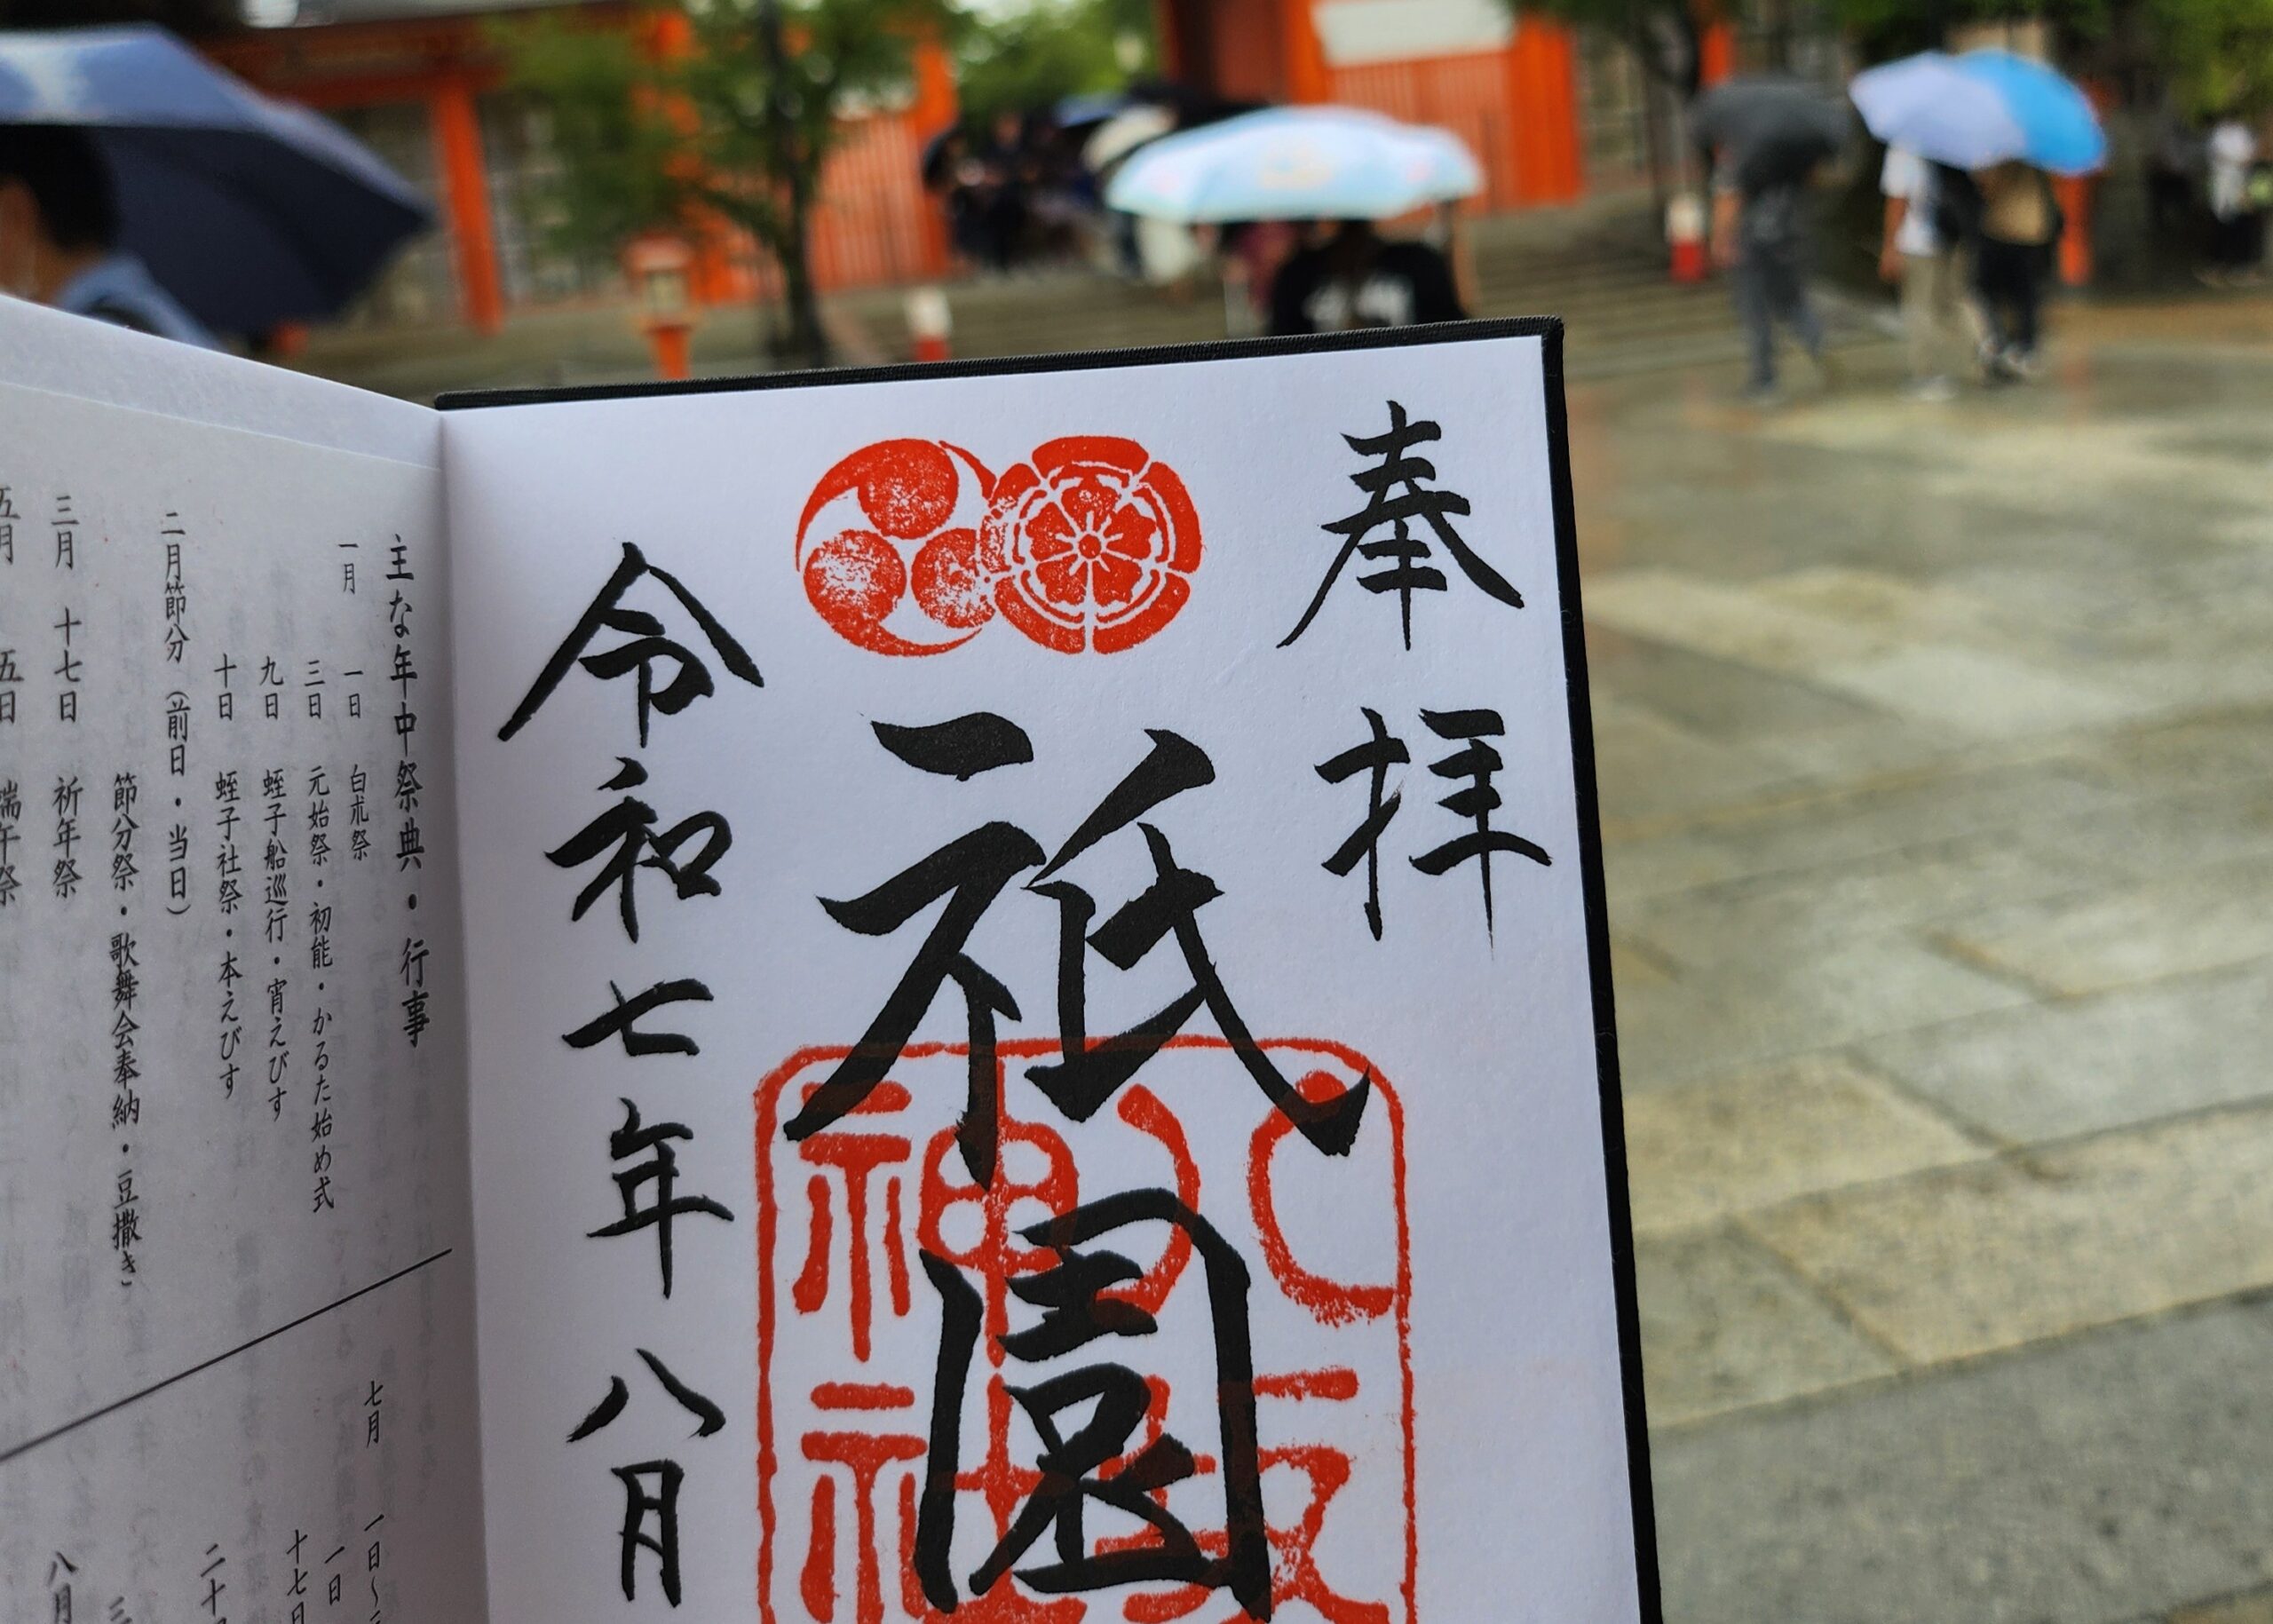 奉拝
祇園
八坂神社
令和七年八月
主な年中祭典・行事
一月 一日 白朮祭
三日 元始祭・初能・かるた始め式
九日 蛭子船巡行・宵えびす
十日 蛭子社祭・本えびす
二月節分（前日・当日）
節分祭・歌舞会奉納・豆撒き
三月 十七日 祈年祭
五月 五日 端午祭
七月 一日～
一日
十七日
二十
八月